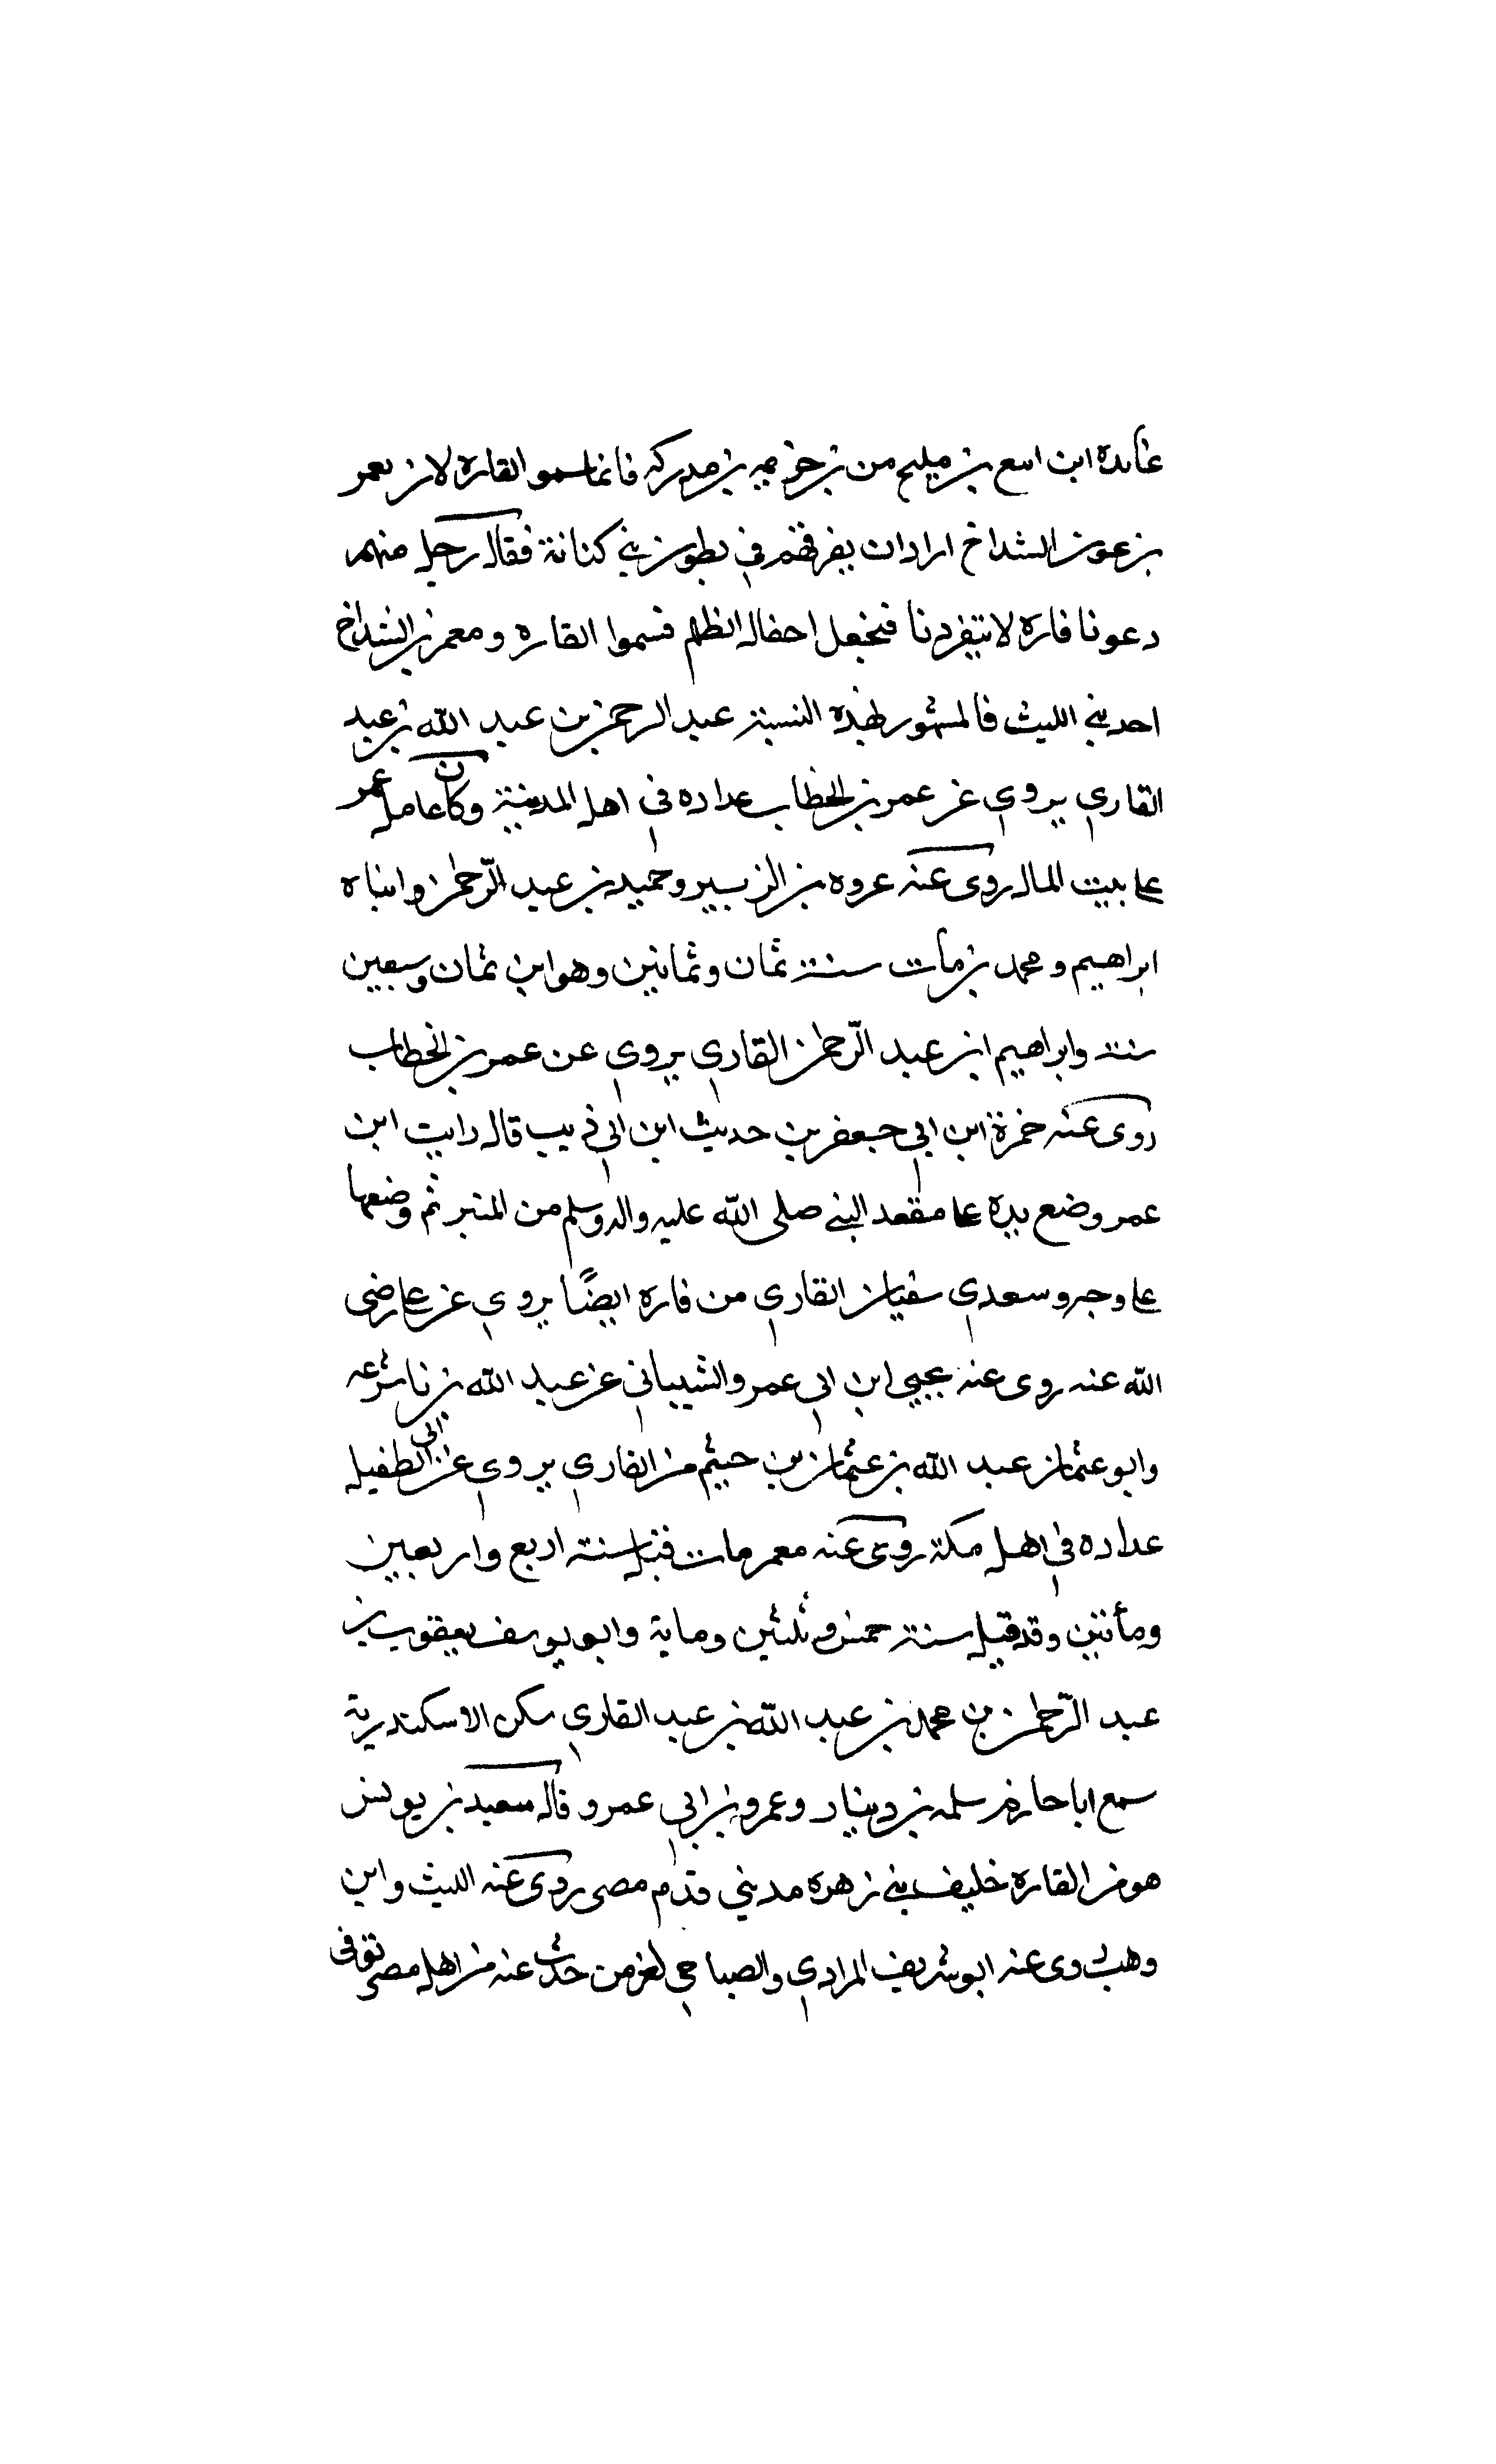 عائدة ابن اسع بن مليح من بن خزيمه بن مدركه فانما سموا القاره لان يعمر
بن عون الشداخ اراد ان يفرقهم في بطون بني كنانة فقال رجل منهم
دعونا قارة لا تنفردنا فنجفل اجفال الظلم فسموا القاره ومعمر بن الشداخ
احد بني الليث فالمشهور لهذه النسبة عبد الرحمن بن عبد الله بن عبد
القاري يروي عن عمر بن الخطاب عداده في اهل المدينة وكان عامل عمر
على بيت المال روى عنه عروه بن الزبير وحميد بن عبد الرّحمن وابناه
ابراهيم ومحمد بن مات سنة ثمان وثمانين وهو ابن ثمان وسبعين
سنة وابراهيم ابن عبد الرّحمن القاري يروي عن عمر بن الخطاب
روى عنه حمزة ابن ابي جعفر بن حديث ابن ابي ذيب قال رايت ابن
عمر وضع يده على مقعد النبي صلى الله عليه واله وسلم من المنبر ثم وضعها
على وجهه وسعدي سفيان القاري من قاره ايضًا يروي عن على رضى
الله عنه روى عنه يحيى ابن ابي عمرو الشيباني عن عبد الله بن ناشرعه
وابو عثمان عبد الله بن عثمان بن خيثم من القاري يروي عن ابى الطفيل
عداده في اهل مكة روى عنه معمر مات قبل سنة اربع واربعين
ومأتين وقد قيل سنة خمس وثلثين وماية وابو يوسف يعقوب بن
عبد الرّحمن بن محمد بن عبد الله بن عبد القاري سكن الاسكندرية
سمع ابا حازم سلمه بن دينار وعمرو بن ابي عمرو قال سعيد بن يونس
هو من القاره خليف بني زهره مديني قدم مصر روى عنه الليث وابن
وهب روى عنه ابو شريف المرادي والصباحي لغز من حدث عنه من اهل مصر توفى